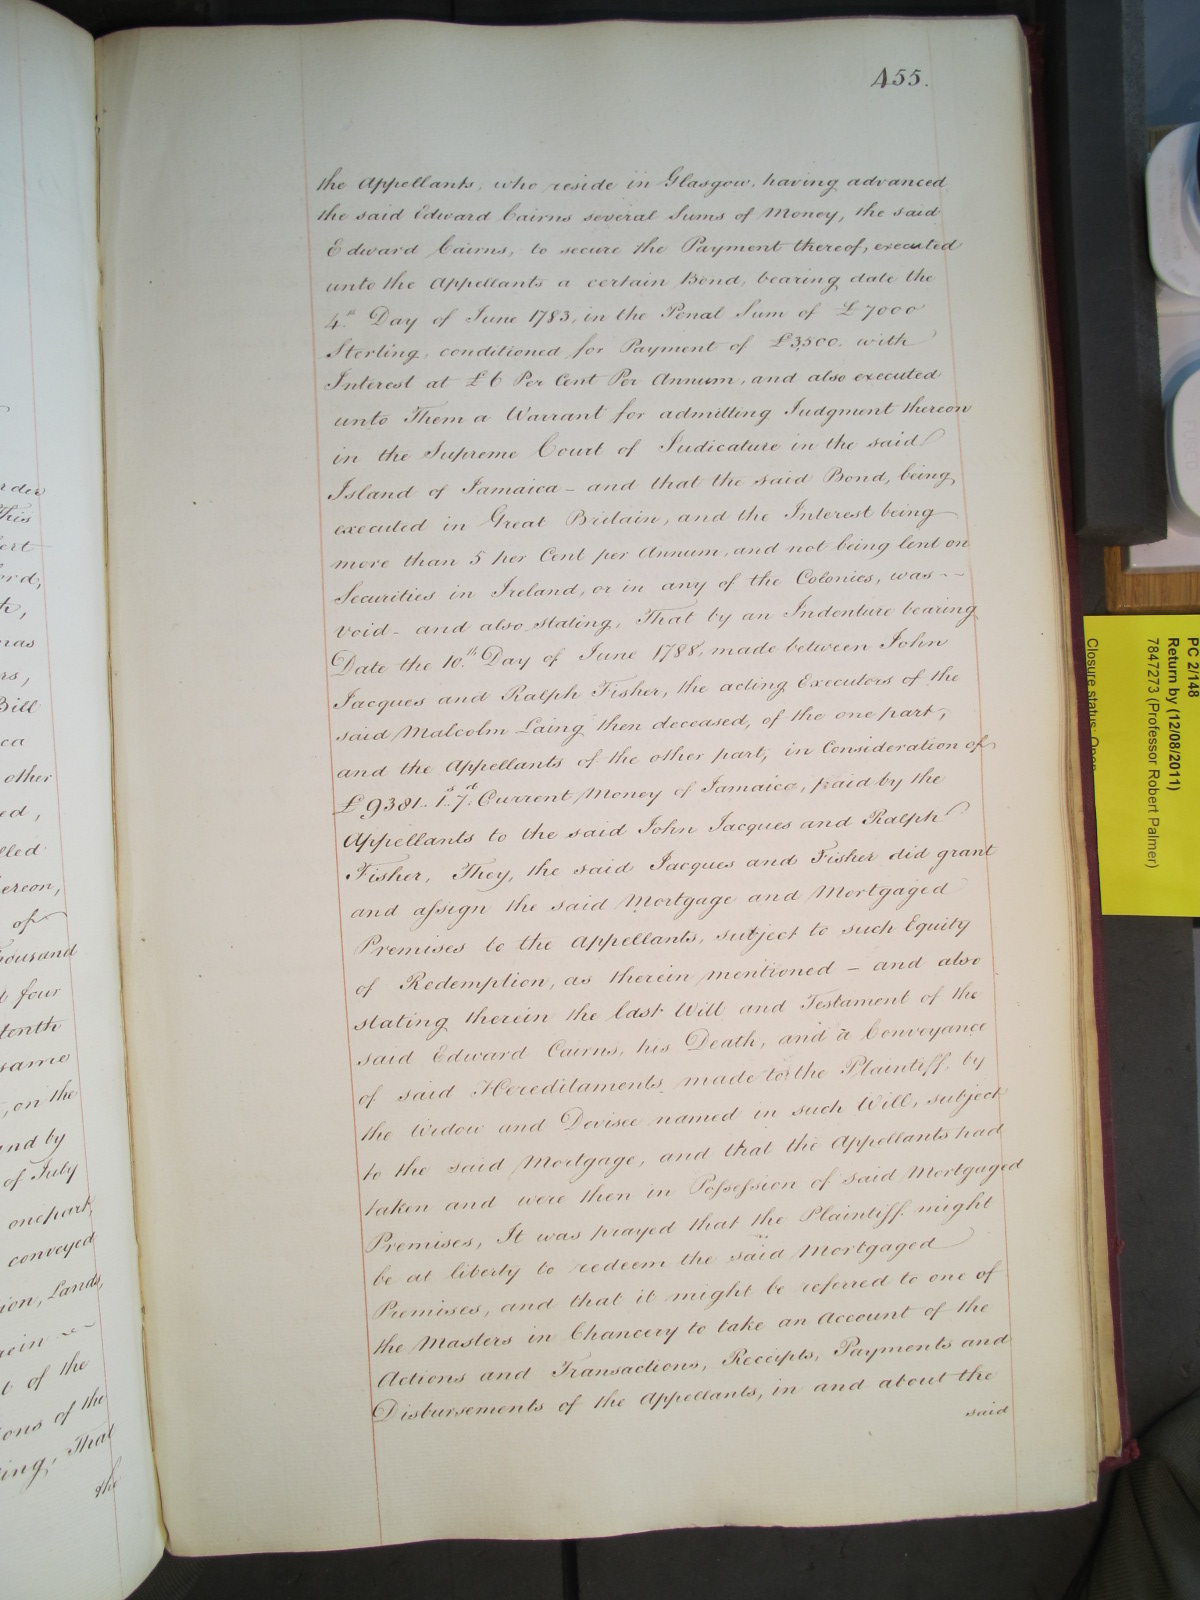 455.
the Appellants, who reside in Glasgow, having advanced
the said Edward Cairns several Sums of Money, the said
Edward Cairns, to secure the Payment thereof, executed
unto the Appellants a certain Bond, bearing date the
4th Day of June 1783, in the Penal Sum of £7000
Sterling, conditioned for Payment of £3500, with
Interest at £6 Per Cent Per Annum, and also executed
unto Them a Warrant for admitting Judgment thereon
in the Supreme Court of Judicature in the said
Island of Jamaica - and that the said Bond, being
executed in Great Britain, and the Interest being
more than 5 per Cent per Annum, and not being lent on
Securities in Ireland, or in any of the Colonies, was --
void - and also stating, That by an Indenture bearing
Date the 10th Day of June 1788, made between John
Jacques and Ralph Fisher, the acting Executors of the
said Malcolm Laing then deceased, of the one part,
and the Appellants of the other part, in Consideration of
£9381. 1s. 7d. Current Money of Jamaica, paid by the
Appellants to the said John Jacques and Ralph
Fisher, They, the said Jacques and Fisher did grant
and assign the said Mortgage and Mortgaged
Premises to the Appellants, subject to such Equity
of Redemption, as therein mentioned - and also
stating therein the last Will and Testament of the
said Edward Cairns, his Death, and a Conveyance
of said Hereditaments made to the Plaintiff, by
the Widow and Devisee named in such Will, subject
to the said Mortgage, and that the Appellants had
taken and were then in Possession of said Mortgaged
Premises, It was prayed that the Plaintiff might
be at liberty to redeem the said Mortgaged
Premises, and that it might be referred to one of
the Masters in Chancery to take an Account of the
Actions and Transactions, Receipts, Payments and
Disbursements of the Appellants, in and about the
said
rder
This
ord,
nas
rs,
Bill
ca
other
ed,
lled
ereon,
of
housand
d four
tenth
same
, on the
and by
of July
one part,
conveyed
ion, Lands,
rein
t of the
ons of the
ing, That
the
PC 2/148
Return by (12/08/2011)
7847273 (Professor Robert Palmer)
Closure status: Open